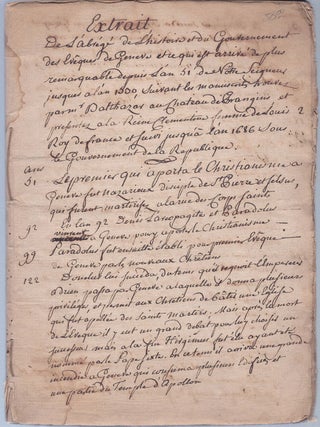 Extrait
De L'abrégé de L'histoire et du Gouvernement
des Eveques de Geneve et ce qui est arrivé de plus
remarquable depuis L'an 51 de Notre Seigneur
jusques a L'an 1500 Suivant les manuscrits trouvés
par mr Balthazar au Chateau de Prangins et
presentés a la Reine Clementine femme de Louis 2
Roy de france et suivi jusqu'a L'an 1686 Sous
Le Gouvernement de La Republique.
Ans
51 Le premier qui aporta le Christianisme a
Geneve fut Nazarieux disciple de Pierre et Celsus
qui furent martirisés a la rue des Corps Saints
92 En L'an 92 Denis L'areopagite et Paradolus
vinrent a Geneve pour y apostol. Christianisme
99 Paradolus fut ensuite établi pour premier Evêque
de Geneve par les nouveaux Chrétiens
122 Donelus lui succeda du tems que regnoit L'Empereur
Adrien passa par Geneve a laquelle il donna plusieurs
privileges et permit aux Chretiens de bâtir une Eglise
qui fut apellée des Saints Martirs. Mais après la mort
de L'Evêque il y eut un grand debat pour le choix d'un
successeur mais a la fin Higinus fut élu ayant été
nommé par le Pape Sixte. En ce tems il arriva une grande
incendie a Geneve qui consuma plusieurs Edifices et
une partie du Temple d'Apollon